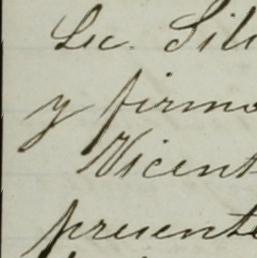 Lic. Silv
y firmo
Vicent
presente